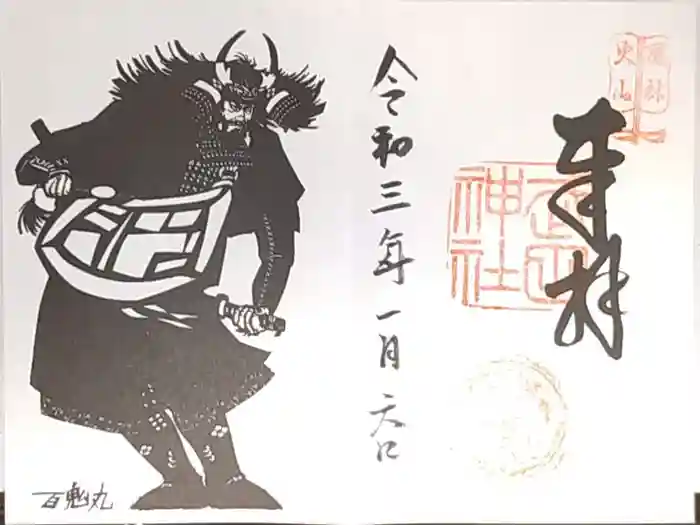 風林
火山
奉拝
武田
神社
令和三年一月六日
百鬼丸